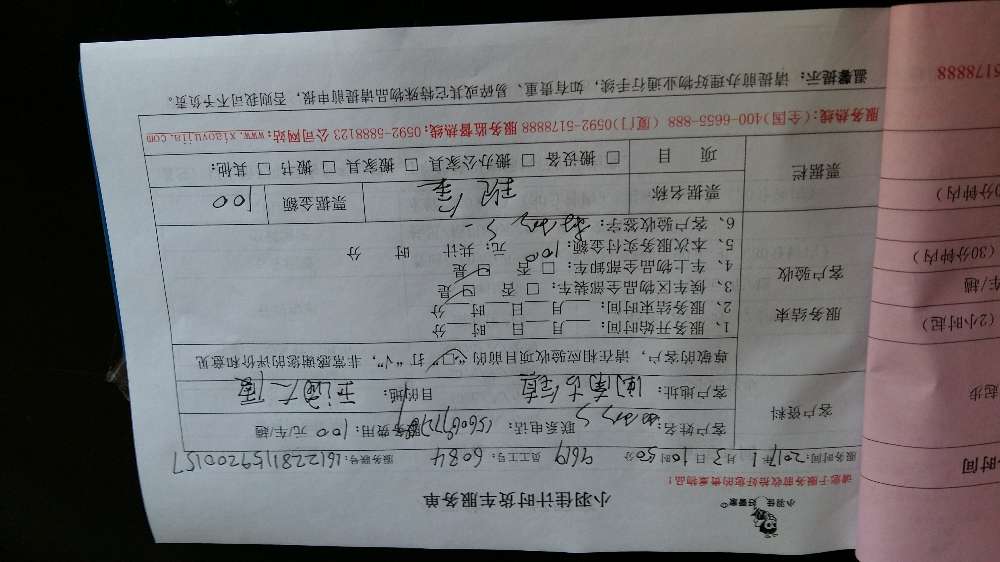 小羽佳 好管家
小羽佳计时货车服务单
请您于服务前收拾好您的贵重物品！
服务时间：2017年1月3日10时50分 9619 员工工号：6084 服务账号：1612281159200157
客户资料
客户姓名： 联系电话： 服务费用：100 元/车/趟
客户地址： 目的地：
尊敬的客户，请在相应验收项目前的“□”打“√”，非常感谢您的评价和意见
服务结束
客户验收
1、服务开始时间：___月___日___时___分
2、服务结束时间：___月___日___时___分
3、候车区物品全部装车：□ 否 □ 是
4、车上物品全部卸车：□ 否 □ 是
5、本次服务实付金额：100 元；共计 时 分
6、客户验收签字：
票据栏
票据名称 现金 票据金额 100
项 目 □ 搬设备 □ 搬办公家具 □ 搬家具 □ 搬书 □ 其他：
服务热线：(全国)400-6655-888 (厦门)0592-5178888 服务监督热线：0592-5888123 公司网站：www.xiaoyujia.com
温馨提示：请提前办理好物业通行手续，如有贵重、易碎或其它特殊物品请提前申报，否则我司不予负责。
5178888
0分钟内)
(30分钟内)
车/趟
(2小时起)
起步
时间